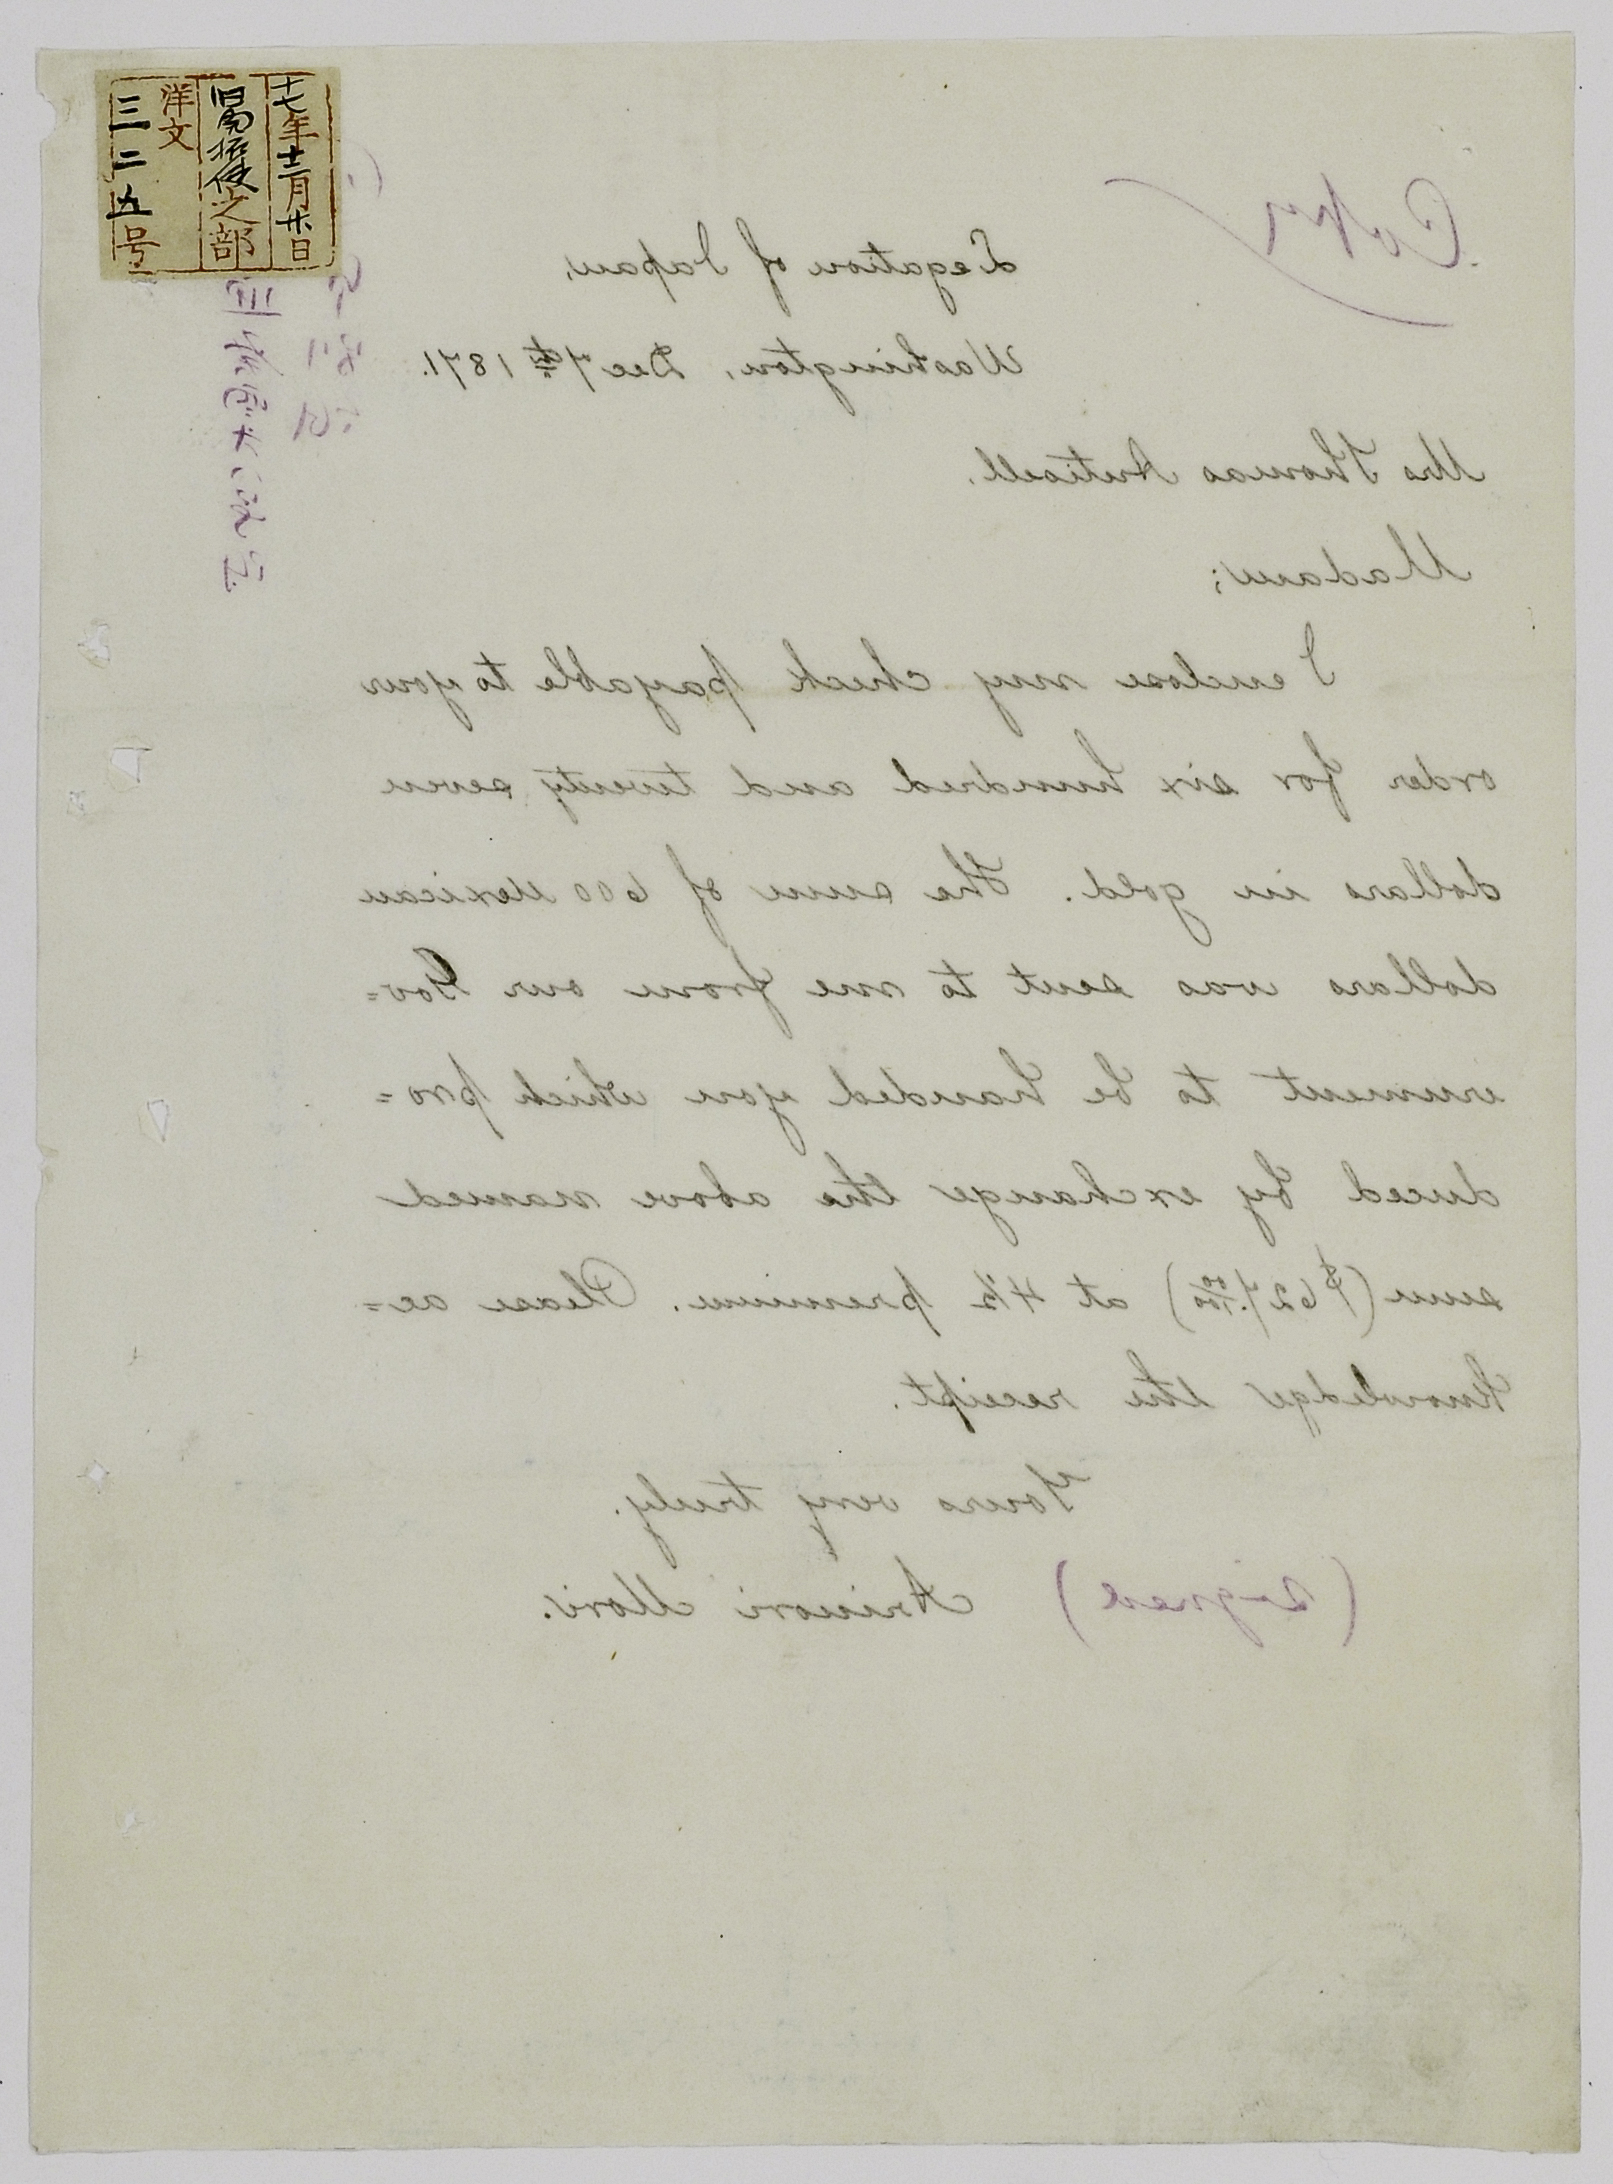 十七年十二月廿日
旧開拓使之部
洋文
三二五号
Copy
Legation of Japan,
Washington, Dec 7th 1871.
Mrs Thomas Antisell.
Madam;
I enclose my check payable to your
order for six hundred and twenty seven
dollars in gold. The sum of 600 Mexican
dollars was sent to me from our Gov=
ernment to be handed you which pro=
duced by exchange the above named
sum ($627.00/100) at 4½ premium. Please ac=
knowledge the receipt.
Yours very truly.
(signed) Arinori Mori.